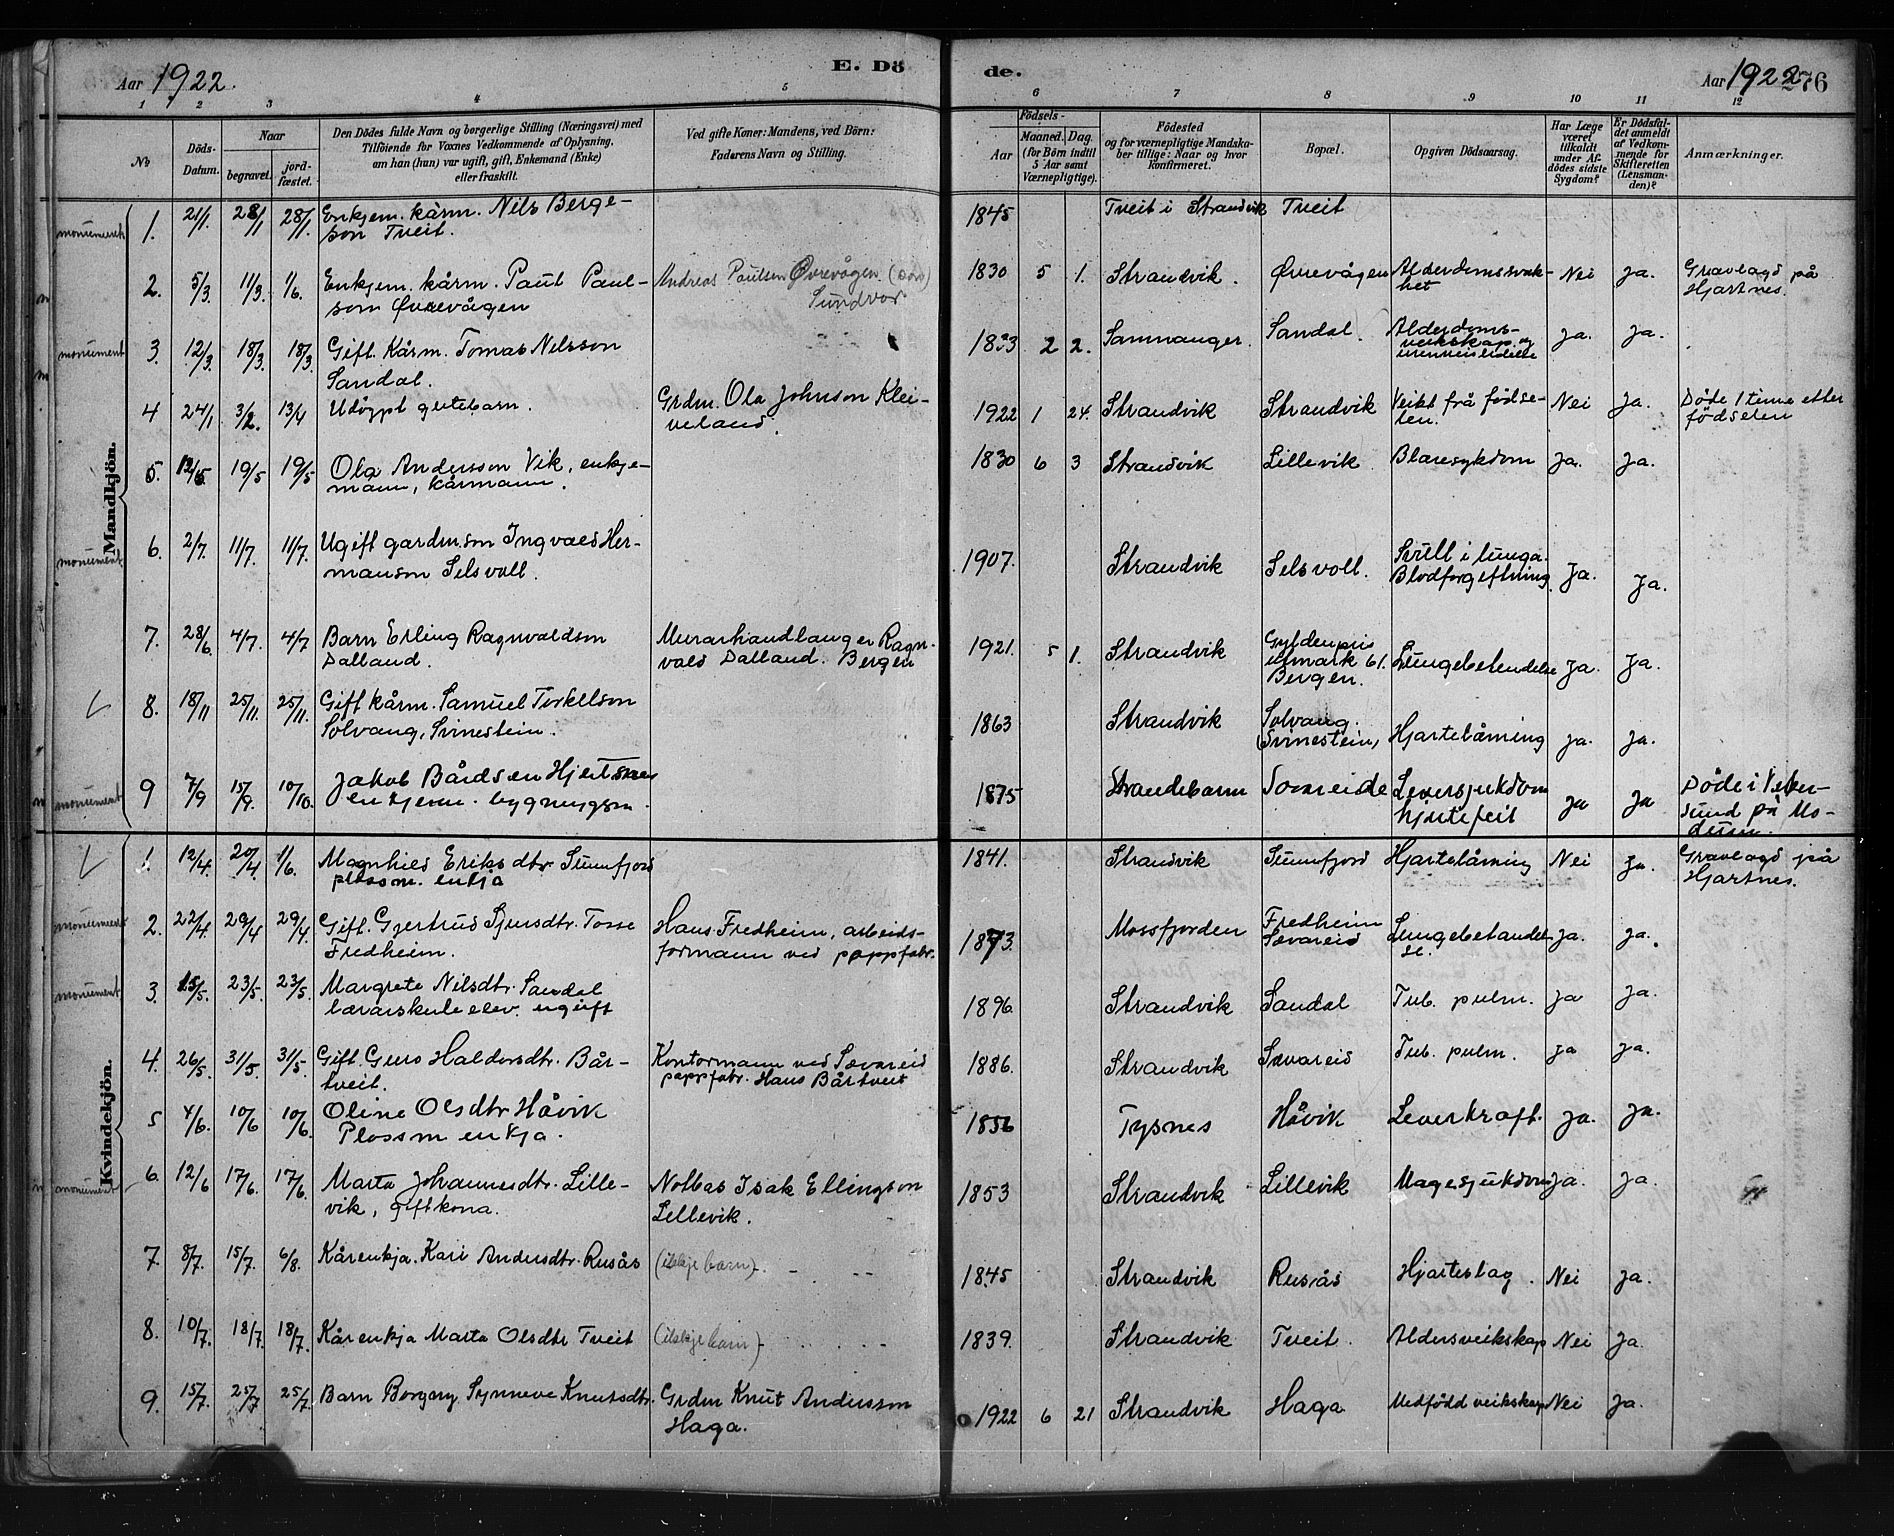 Aar 1922.
E. Dö
de.
Aar 1922
276
1 2 3 4 5 6 7 8 9 10 11 12
No
Döds-
Datum.
Naar
begravet.
jord-
fæstet.
Den Dödes fulde Navn og borgerlige Stilling (Næringsvei) med
Tilföiende for Voxnes Vedkommende af Oplysning,
om han (hun) var ugift, gift, Enkemand (Enke)
eller fraskilt.
Ved gifte Koner: Mandens, ved Börn:
Faderens Navn og Stilling.
Födsels-
Aar
Maaned. Dag.
(for Börn indtil
5 Aar samt
Værnepligtige).
Födested
og for værnepligtige Mandska-
ber tillige: Naar og hvor
konfirmeret.
Bopæl.
Opgiven Dödsaarsag.
Har Læge
været
tilkaldt
under Af-
dödes sidste
Sygdom?
Er Dödsfal-
det anmeldt
af Vedkom-
mende for
Skifteretten
(Lensman-
den)?
Anmærkninger.
Mandkjön.
monument 1. 21/1. 28/1 28/1. Enkjem. kårm. Nils Berge-
son Tveit.
1845 Tveit i Strandvik Tveit
2. 5/3. 11/3. 1/6. Enkjem. kårm. Paul Paul-
son Øvrevågen
Andreas Paulsen Øvrevågen (søn)
Sundvor
1830 5 1. Strandvik. Øvrevågen Alderdomssvak-
het Nei Ja. Gravlagd på
Hjartnes.
monument 3. 12/3. 18/3. 18/3 Gift. Kårm. Tomas Nilsson
Sandal.
1833 2 2. Samnanger. Sandal. Alderdoms-
veikskap og
Ja. Ja.
4 24/1 3/2. 13/4 Udöypt gutebarn.
Grdm. Ola Johnson Klei-
veland.
1922 1 24. Strandvik Strandvik Veikt frå födse-
len. Nei Ja. Döde 1 time etter
födselen
5. 12/5 19/5 19/5 Ola Andersson Vik, enkje-
mann, kårmann.
1830 6 3 Strandvik Lillevik. Blæresykdom Ja. Ja.
monument 6. 2/7. 11/7. 11/7. Ugift gardm.son Ingvald Her-
manson Selsvoll.
1907. Strandvik Selsvoll. Svull i lunga.
Blodforgeftning. Ja. Ja.
7. 28/6. 4/7. 4/7 Barn Erling Ragnvaldson
Dalland.
Murarhandlanger Ragn-
vald Dalland. Bergen
1921. 5 1. Strandvik Gyldenpris
utmark 61.
Bergen. Lungebetendelse Ja. Ja.
8. 18/11 25/11. 25/11. Gift kårm. Samuel Torkellson
Solvang, Svinestein.
1863 Strandvik Solvang.
(Svinestein) Hjartelåming Ja. Ja.
monument 9 7/9 15/9. 10/10. Jakob Bårdsen Hjertnes
enkjem. bygningsm.
1875 Strandebarm Sævareide Leversjukdom
hjartefeil Ja Ja Döde i Viker-
sund på Mo-
dum.
Kvindekjön.
1. 12/4. 20/4. 1/6. Magnhild Eriksdtr. Sumfjord
plassm. enkja
1841. Strandvik Sumfjord Hjartelåming Nei Ja. Gravlagd på
Hjartnes.
monument 2. 22/4. 29/4 29/4. Gift. Gjertrud Sjursdtr. Tosse
Fredheim.
Hans Fredheim, arbeids-
formann ved pappfabr.
1873. Mossfjorden Fredheim
Sævareid Lungebetendel-
se. Ja. Ja.
monument 3. 15/5. 23/5. 23/5. Margrete Nilsdtr. Sandal
lærarskule elev. ugift
1896 Strandvik Sandal Tub. pulm. Ja Ja.
4. 26/5. 31/5. 31/5. Gift. Guro Haldorsdtr. Bår-
tveit.
Kontormann ved Sævareid
pappfabr. Hans Bårtveit
1886. Strandvik Sævareid Tub. pulm. Ja Ja.
5 4/6. 10/6 10/6. Oline Olsdtr Håvik
Plassm enkja.
1856 Tysnes Håvik Leverkræft. Ja. Ja.
monument 6. 12/6 17/6. 17/6. Marta Johannesdtr. Lille-
vik, giftkona.
Notbas Isak Ellingson
Lillevik.
1853 Strandvik Lillevik Magesjukdom Ja. Ja.
7. 8/7. 15/7. 6/8. Kårenkja. Kari Andersdtr. Rusås (ikkje barn)
1845 Strandvik Rusås Hjarteslag. Nei Ja.
8. 10/7. 18/7. 18/7. Kårenkja Marta Olsdtr Tveit (ikkje barn)
1839. Strandvik Tveit. Aldersveikskap Nei Ja
9. 15/7. 25/7 25/7. Barn Borgny Synneve Knutsdtr. Grdm Knut Andersson
Haga.
1922 6 21 Strandvik Haga Medfødd veikskap Nei Ja.